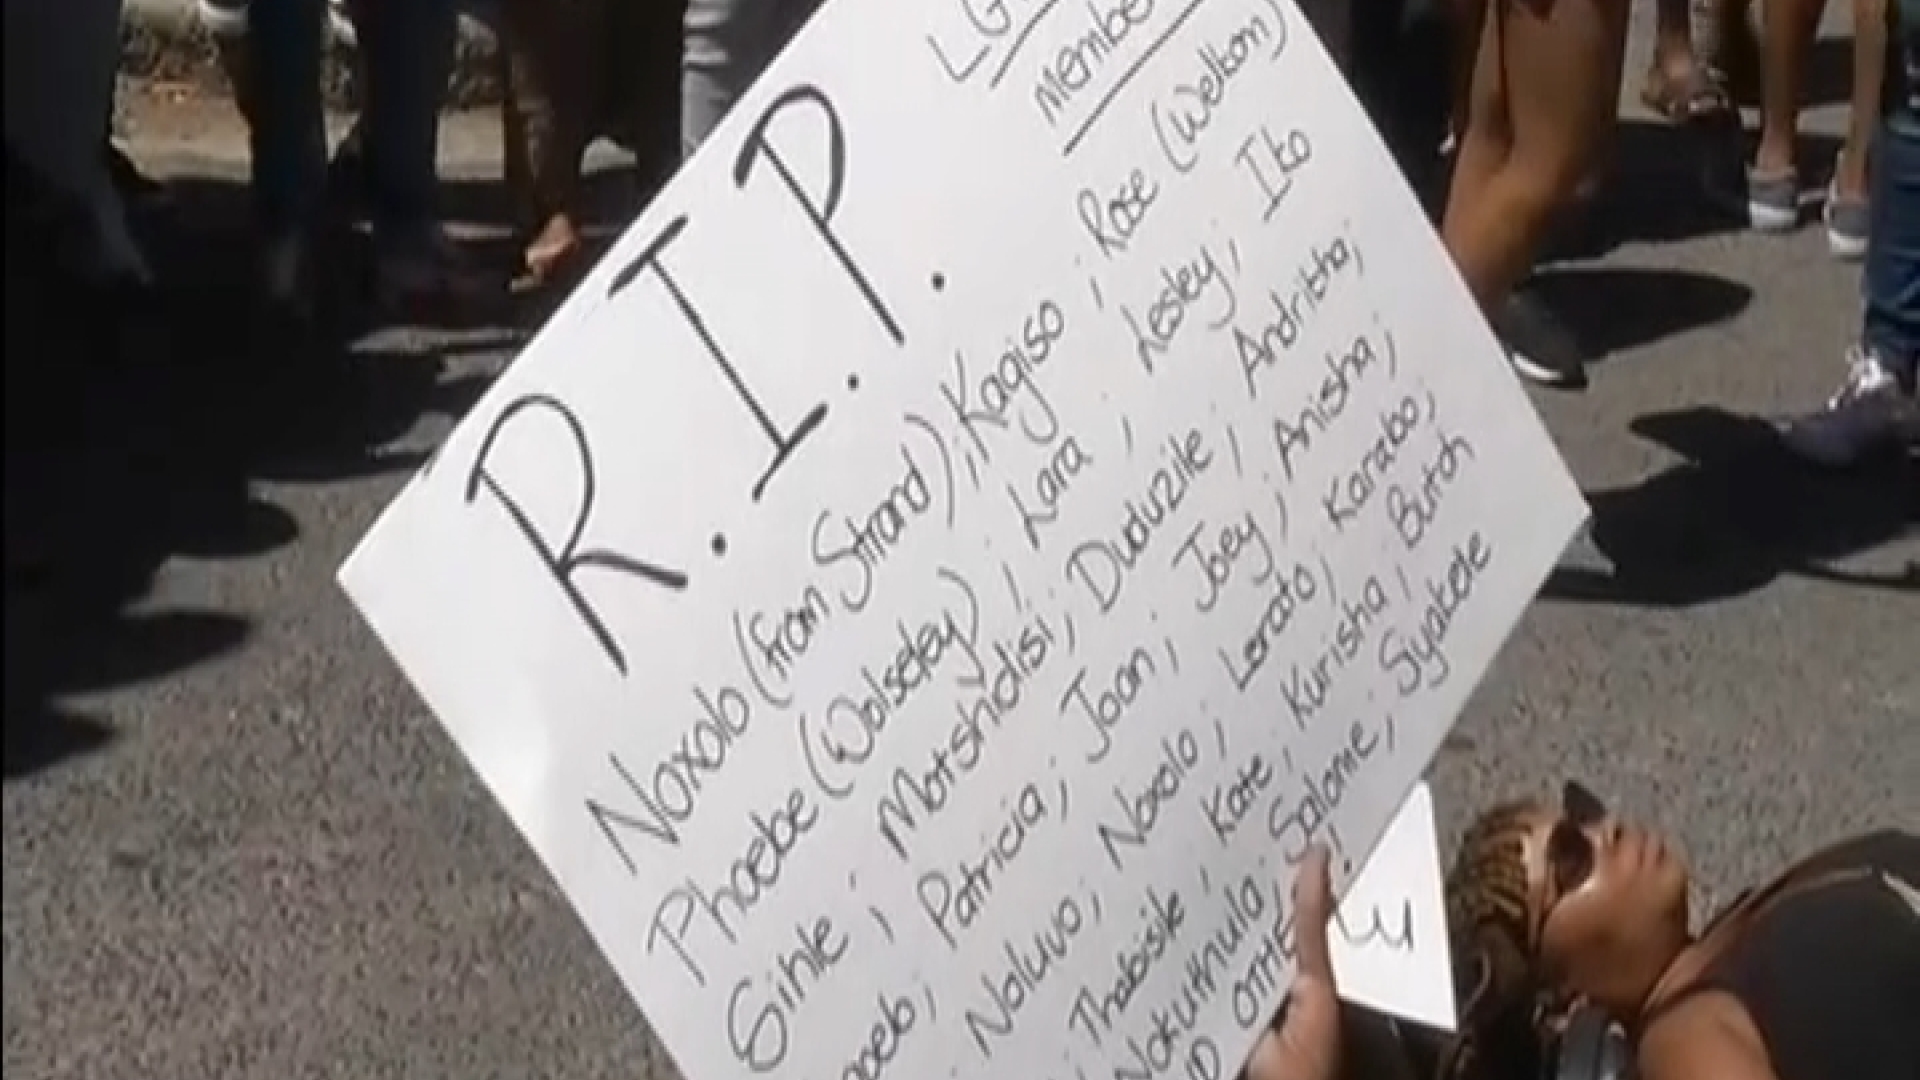 R.I.P.
Members
Noxolo (from Strand); Kagiso ; Rose (Welkom)
Phoebe (Wolseley) ; Lara ; Lesley; Ito
Sihle ; Motshidisi; Duduzile ; Andritha;
Patricia ; Joan ; Joey ; Anisha ;
Noluvo ; Noxolo ; Lerato ; Karabo ;
Thabisile ; Kate ; Kurisha ; Butch
Nokuthula ; Salome ; Syakele